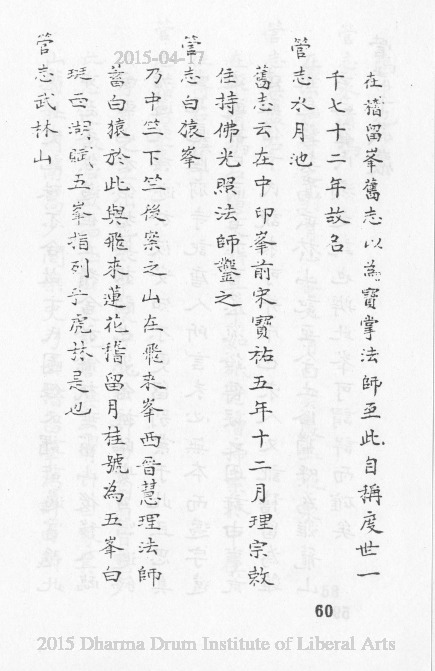 在稽留峯舊志以為寶掌法師至此自稱度世一
千七十二年故名
管志水月池
舊志云在中印峯前宋寶祐五年十二月理宗敕
住持佛光照法師鑿之
管志白猿峯
乃中竺下竺後案之山在飛來峯西晉慧理法師
蓄白猿於此與飛來蓮花稽留月桂號為五峯白
珽西湖賦五峯指列於虎林是也
管志武林山
60
2015-04-17
2015 Dharma Drum Institute of Liberal Arts